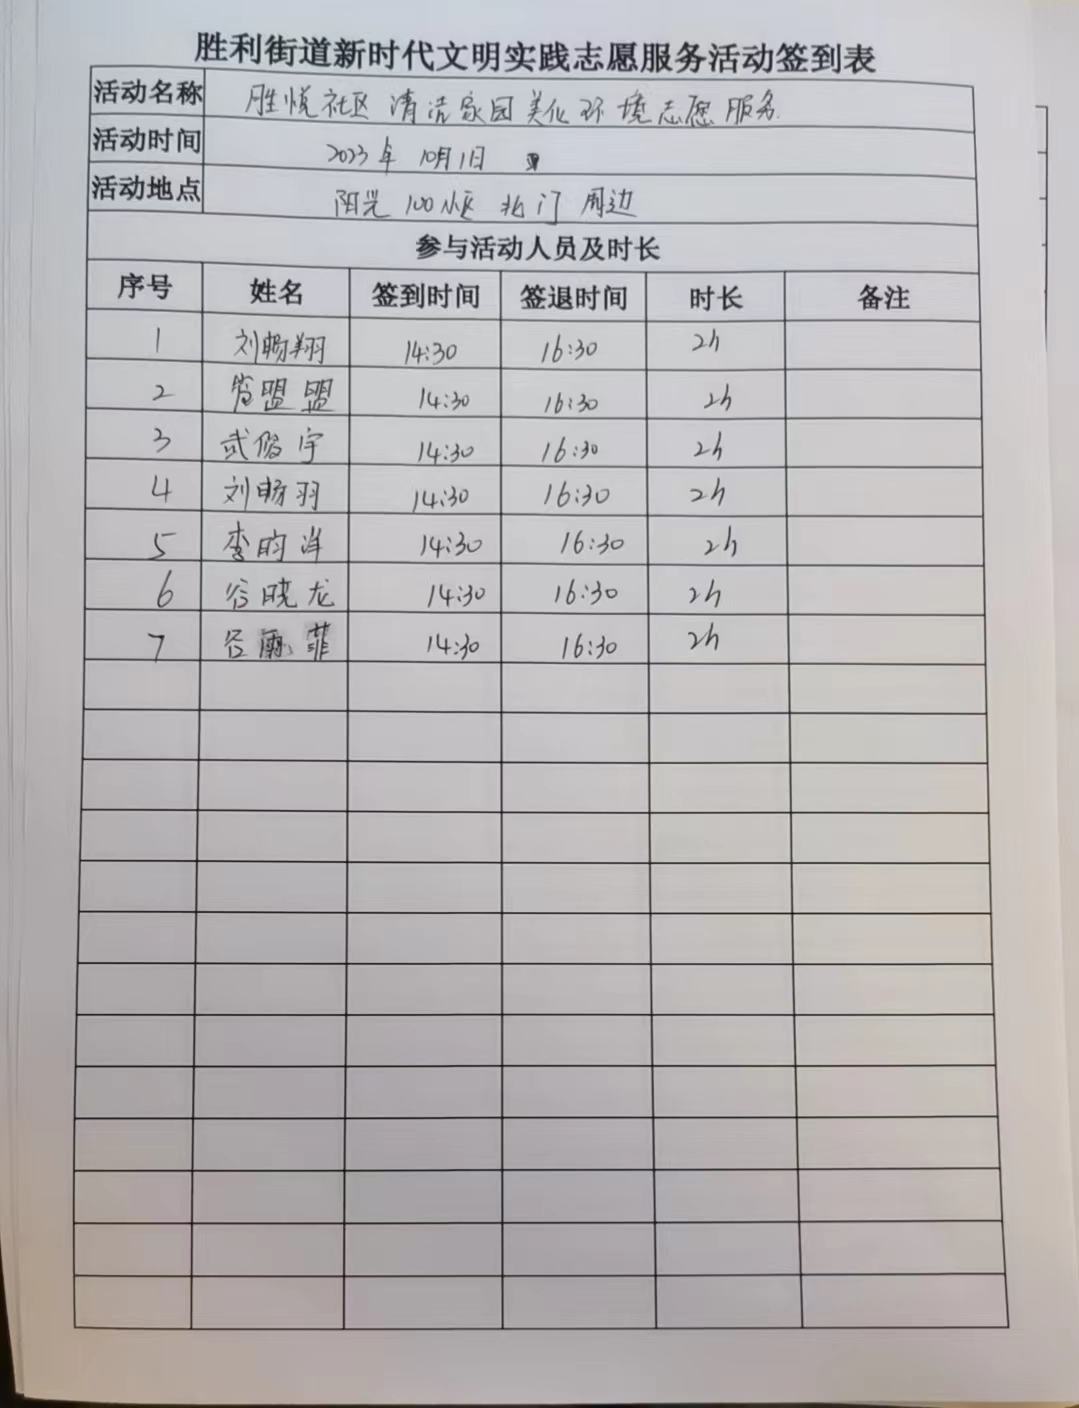 胜利街道新时代文明实践志愿服务活动签到表
活动名称 胜悦社区 清洁家园美化环境志愿服务
活动时间 2023年10月1日
活动地点 阳光100小区 北门 周边
参与活动人员及时长
序号 姓名 签到时间 签退时间 时长 备注
1 刘畅翔 14:30 16:30 2h
2 管盟盟 14:30 16:30 2h
3 武俊宇 14:30 16:30 2h
4 刘畅羽 14:30 16:30 2h
5 李昀洋 14:30 16:30 2h
6 谷晓龙 14:30 16:30 2h
7 谷雨菲 14:30 16:30 2h